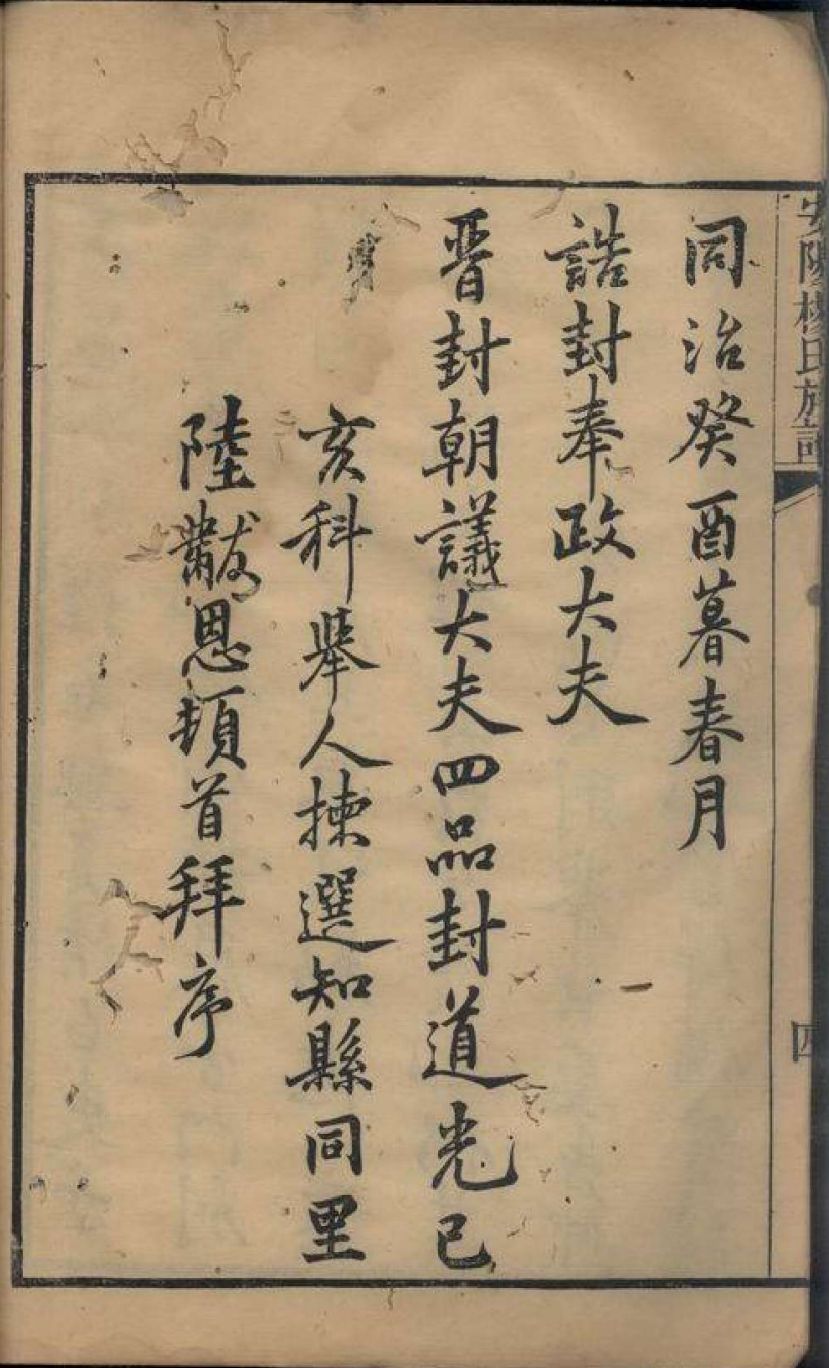 安陽楊氏族譜
四
同治癸酉暮春月
誥封奉政大夫
晉封朝議大夫四品封道光己
亥科舉人揀選知縣同里
陸黻恩頓首拜序